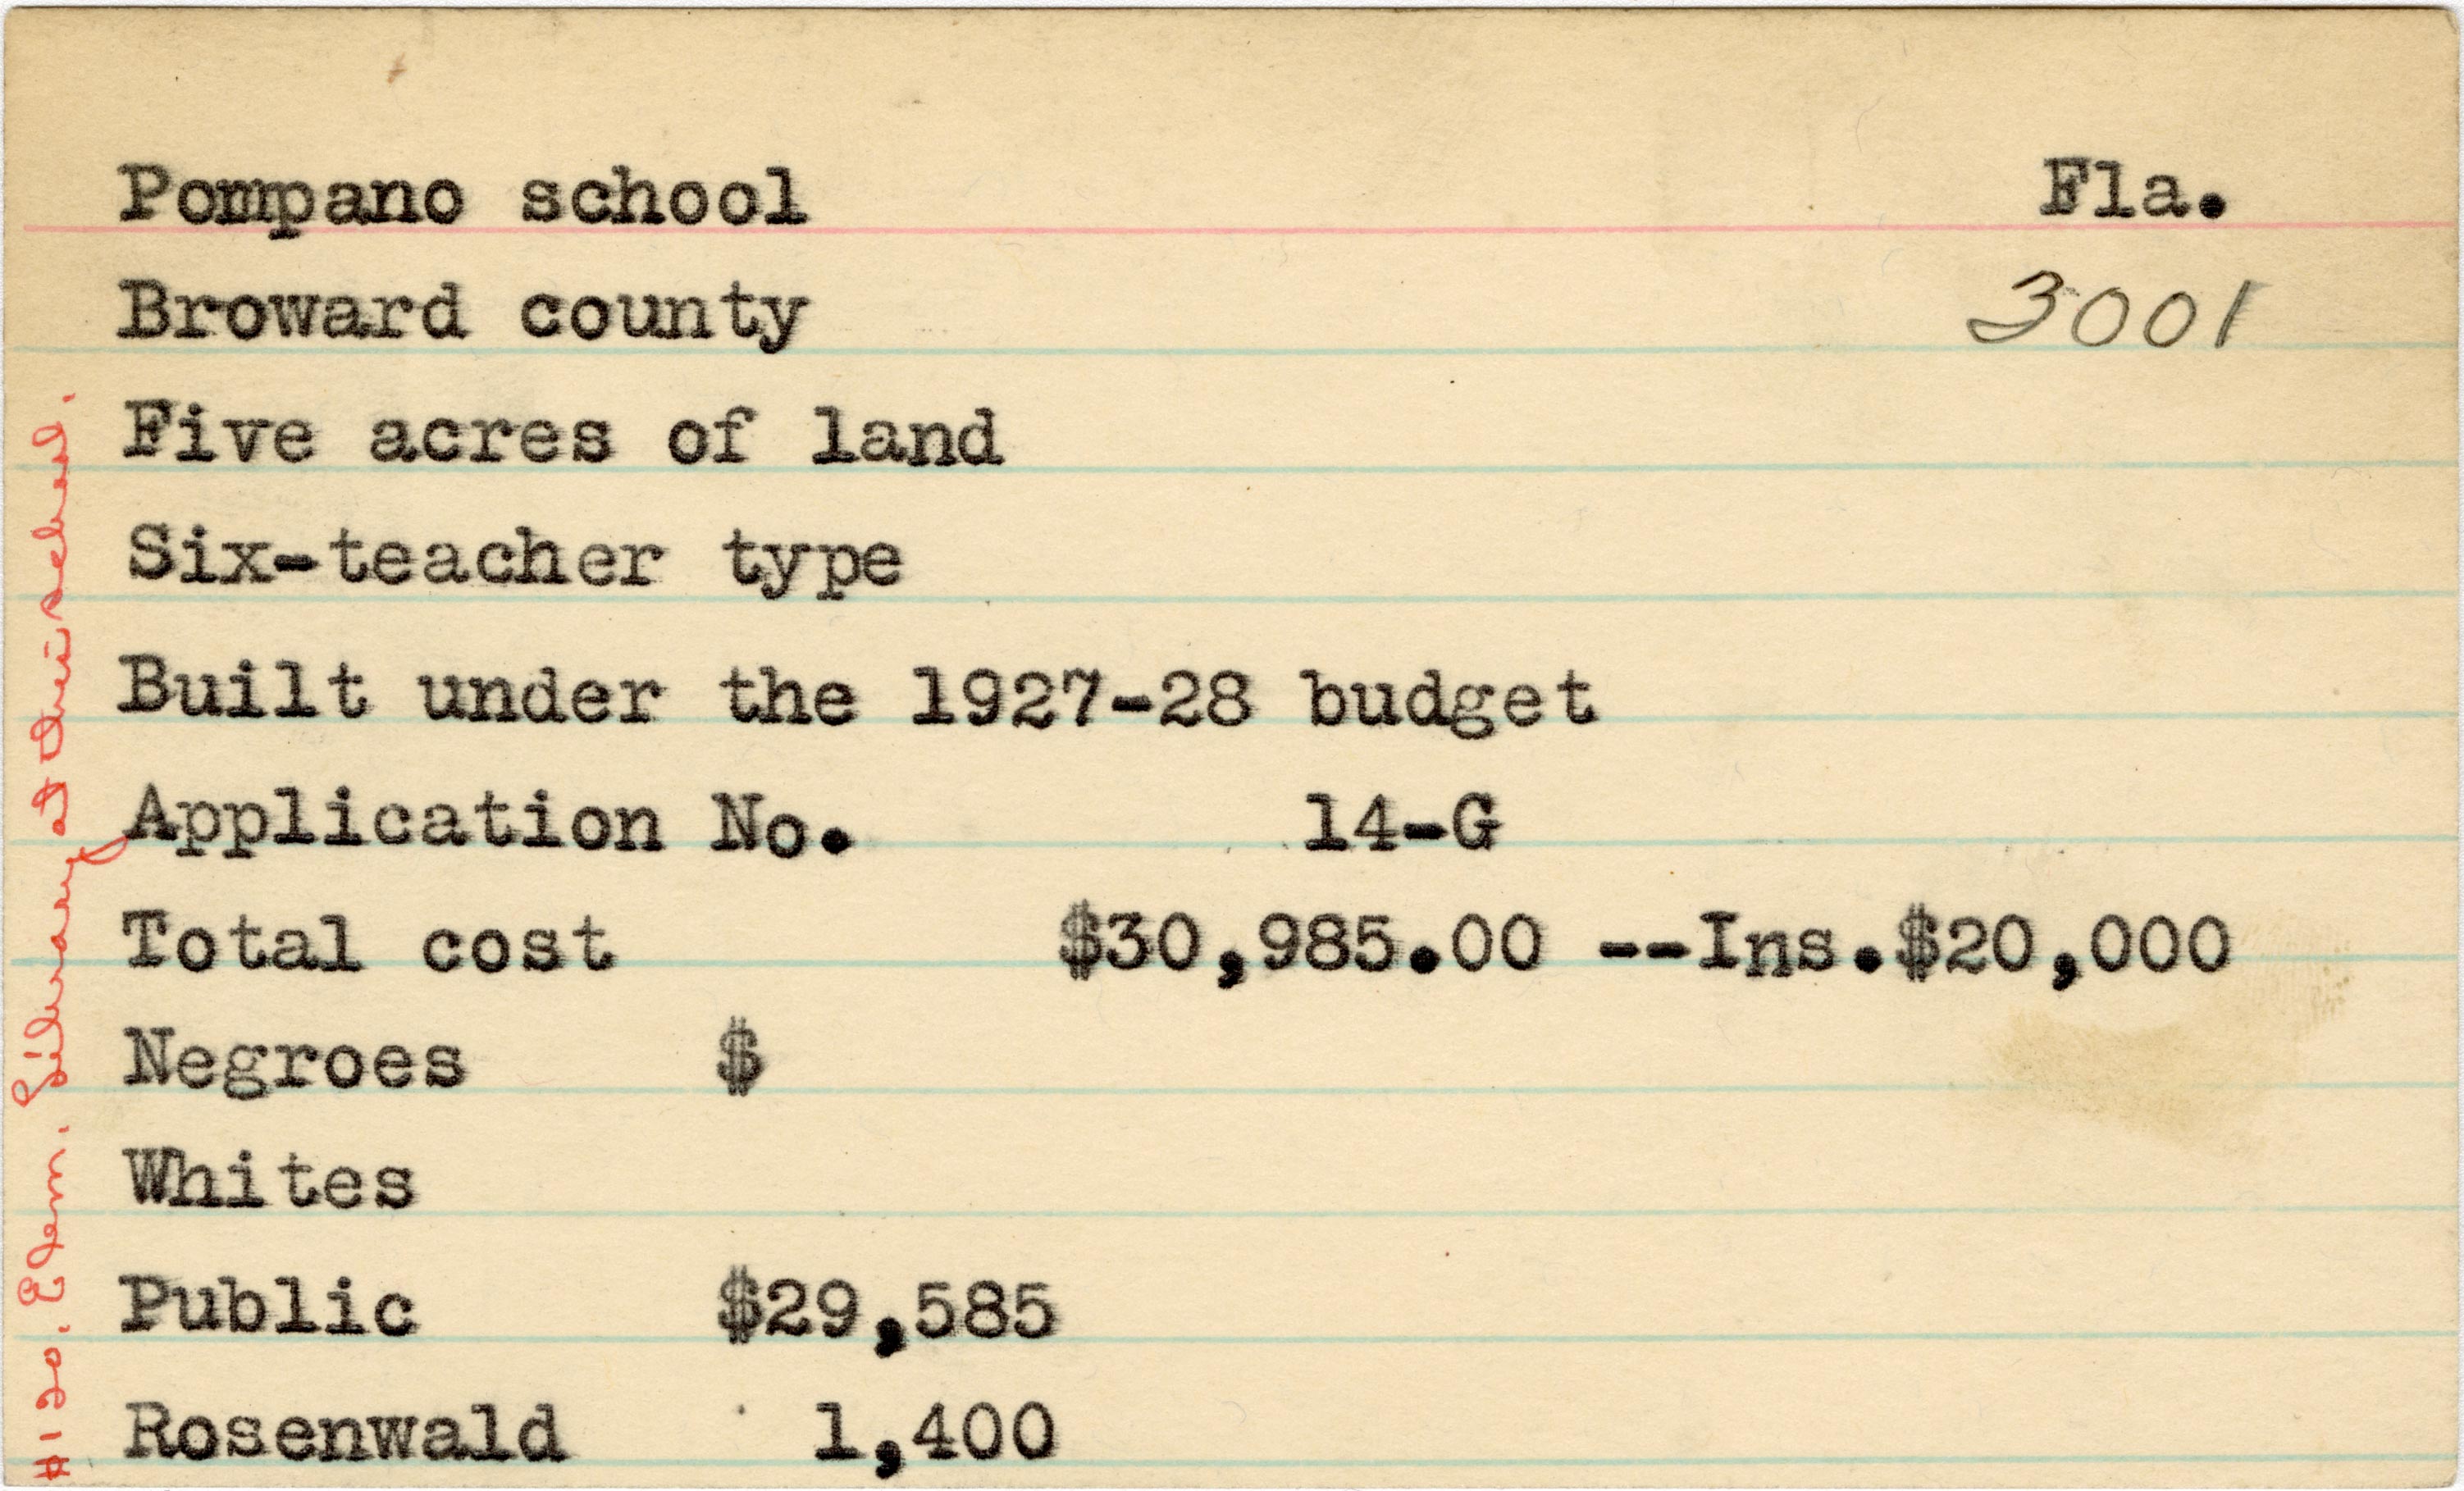 Pompano school Fla.
Broward county 3001
Five acres of land
Six-teacher type
Built under the 1927-28 budget
Application No. 14-G
Total cost $30,985.00 --Ins.$20,000
Negroes $
Whites
Public $29,585
Rosenwald 1,400
#120. Elem. Library at this school.